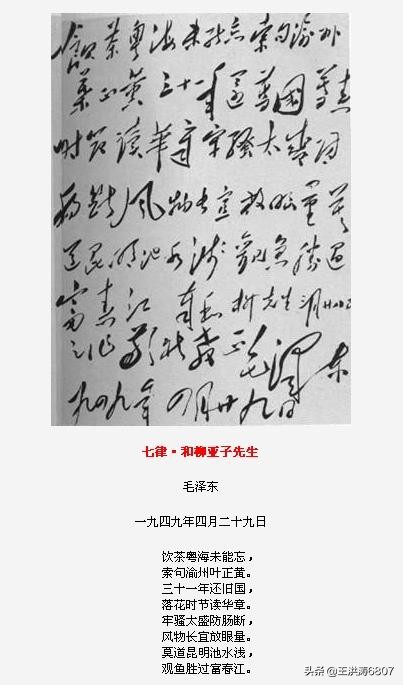 飲茶粤海未能忘索句渝州
葉正黄三十一年還舊國落花
時节读華章牢骚太盛防
腸断风物长宜放眼量莫
道昆明池水浅觀魚勝过
富春江 奉和柳先生三月廿八日
之作敬祈教正 毛泽东
一九四九年 四月廿九日
七律·和柳亚子先生
毛泽东
一九四九年四月二十九日
饮茶粤海未能忘，
索句渝州叶正黄。
三十一年还旧国，
落花时节读华章。
牢骚太盛防肠断，
风物长宜放眼量。
莫道昆明池水浅，
观鱼胜过富春江。
头条 @王洪涛6807